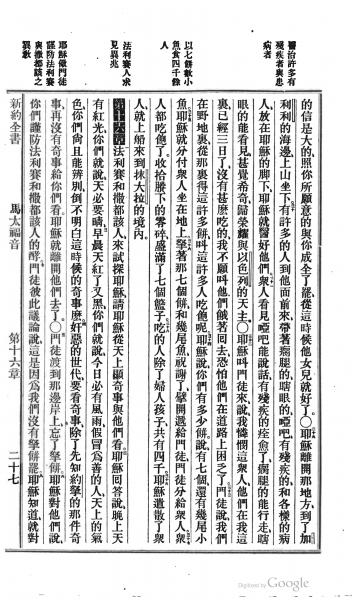 醫治許多有
殘疾者與患
病者
以七餅數小
魚食四千餘
人
法利賽人求
見異兆
耶穌儆門徒
謹防法利賽
與撒都該之
異教
的信是大的照你所願意的與你成全了罷從這時候他女兒就好了〇耶穌離開那地方到了加
利利的海邊上山坐下有許多的人到他面前來帶著瘸腿的瞎眼的啞吧有殘疾的和各樣的病
人放在耶穌的脚下耶穌就醫好他們衆人看見啞吧能說話有殘疾的痊愈了瘸腿的能行走瞎
眼的能看見甚覺希奇歸榮耀與以色列的天主〇耶穌叫門徒來說我憐憫這衆人他們在我這
裏已經三日了沒有甚麽吃的我不願叫他們餓著回去恐怕他們在道路上困乏了門徒說我們
在野地裏從那裏得這許多餅叫這許多人吃飽呢耶穌說你們有多少餅說有七個還有幾尾小
魚耶穌就分付衆人坐在地上拏著那七個餅和幾尾魚祝謝了擘開遞給門徒門徒分給衆人衆
人都吃飽了收拾賸下的零碎盛滿了七個籃子吃的人除了婦人孩子共有四千耶穌遣散了衆
人就上船來到抹大拉的境內
第十六章法利賽和撒都該人來試探耶穌請耶穌從天上顯奇事與他們看耶穌回答說晚上天
有紅光你們就說天必要晴早晨天紅了又黑你們就說今日必有風雨假冒爲善的人天上的氣
色你們尙且能辨別倒不明白這時候的奇事麽奸惡的世代要看奇事除了先知約拏的那件奇
事再沒有奇事給你們看耶穌就離開他們去了〇門徒渡到那邊岸上忘了拏餅耶穌對他們說
你們謹防法利賽和撒都該人的酵門徒彼此議論說這是因爲我們沒有拏餅罷耶穌知道就對
新約全書 馬太福音 第十六章 二十七
Digitized by Google